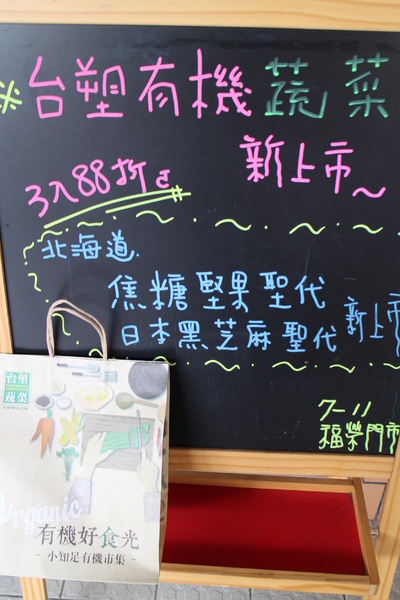 ※台塑有機蔬菜
新上市~
3入88折
北海道
焦糖堅果聖代
日本黑芝麻聖代
新上市
7-11
福榮門市
台塑
蔬菜
Organic
有機好食光
- 小知足有機市集 -